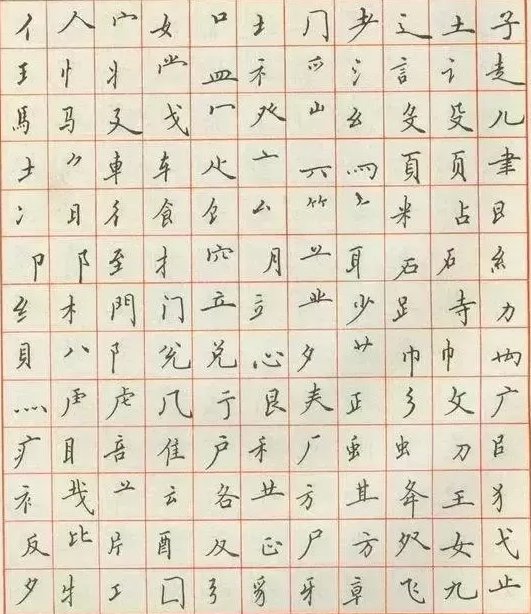 亻人宀女口土冂耂辶土子
王忄丬龸皿礻覀氵言讠走
馬马夊戈冖癶山纟殳殳儿
士車车火亠六罒頁页聿
冫日彳食饣厶⺮米占艮
卩阝至扌穴月䒑耳石石糹
纟木門门立业少足寺力
貝八阝兑兑心夕艹巾巾
灬虍虍几亍艮夫正彡文广
疒目咅隹户禾厂虫虫刀
衤云各龷方其夆王犭
反比片酉殳正尸方女弋
夕牜工囗弓豸牙章飞九止